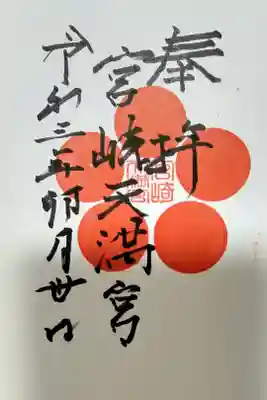 奉拝
宮崎天満宮
令和三年卯月廿日